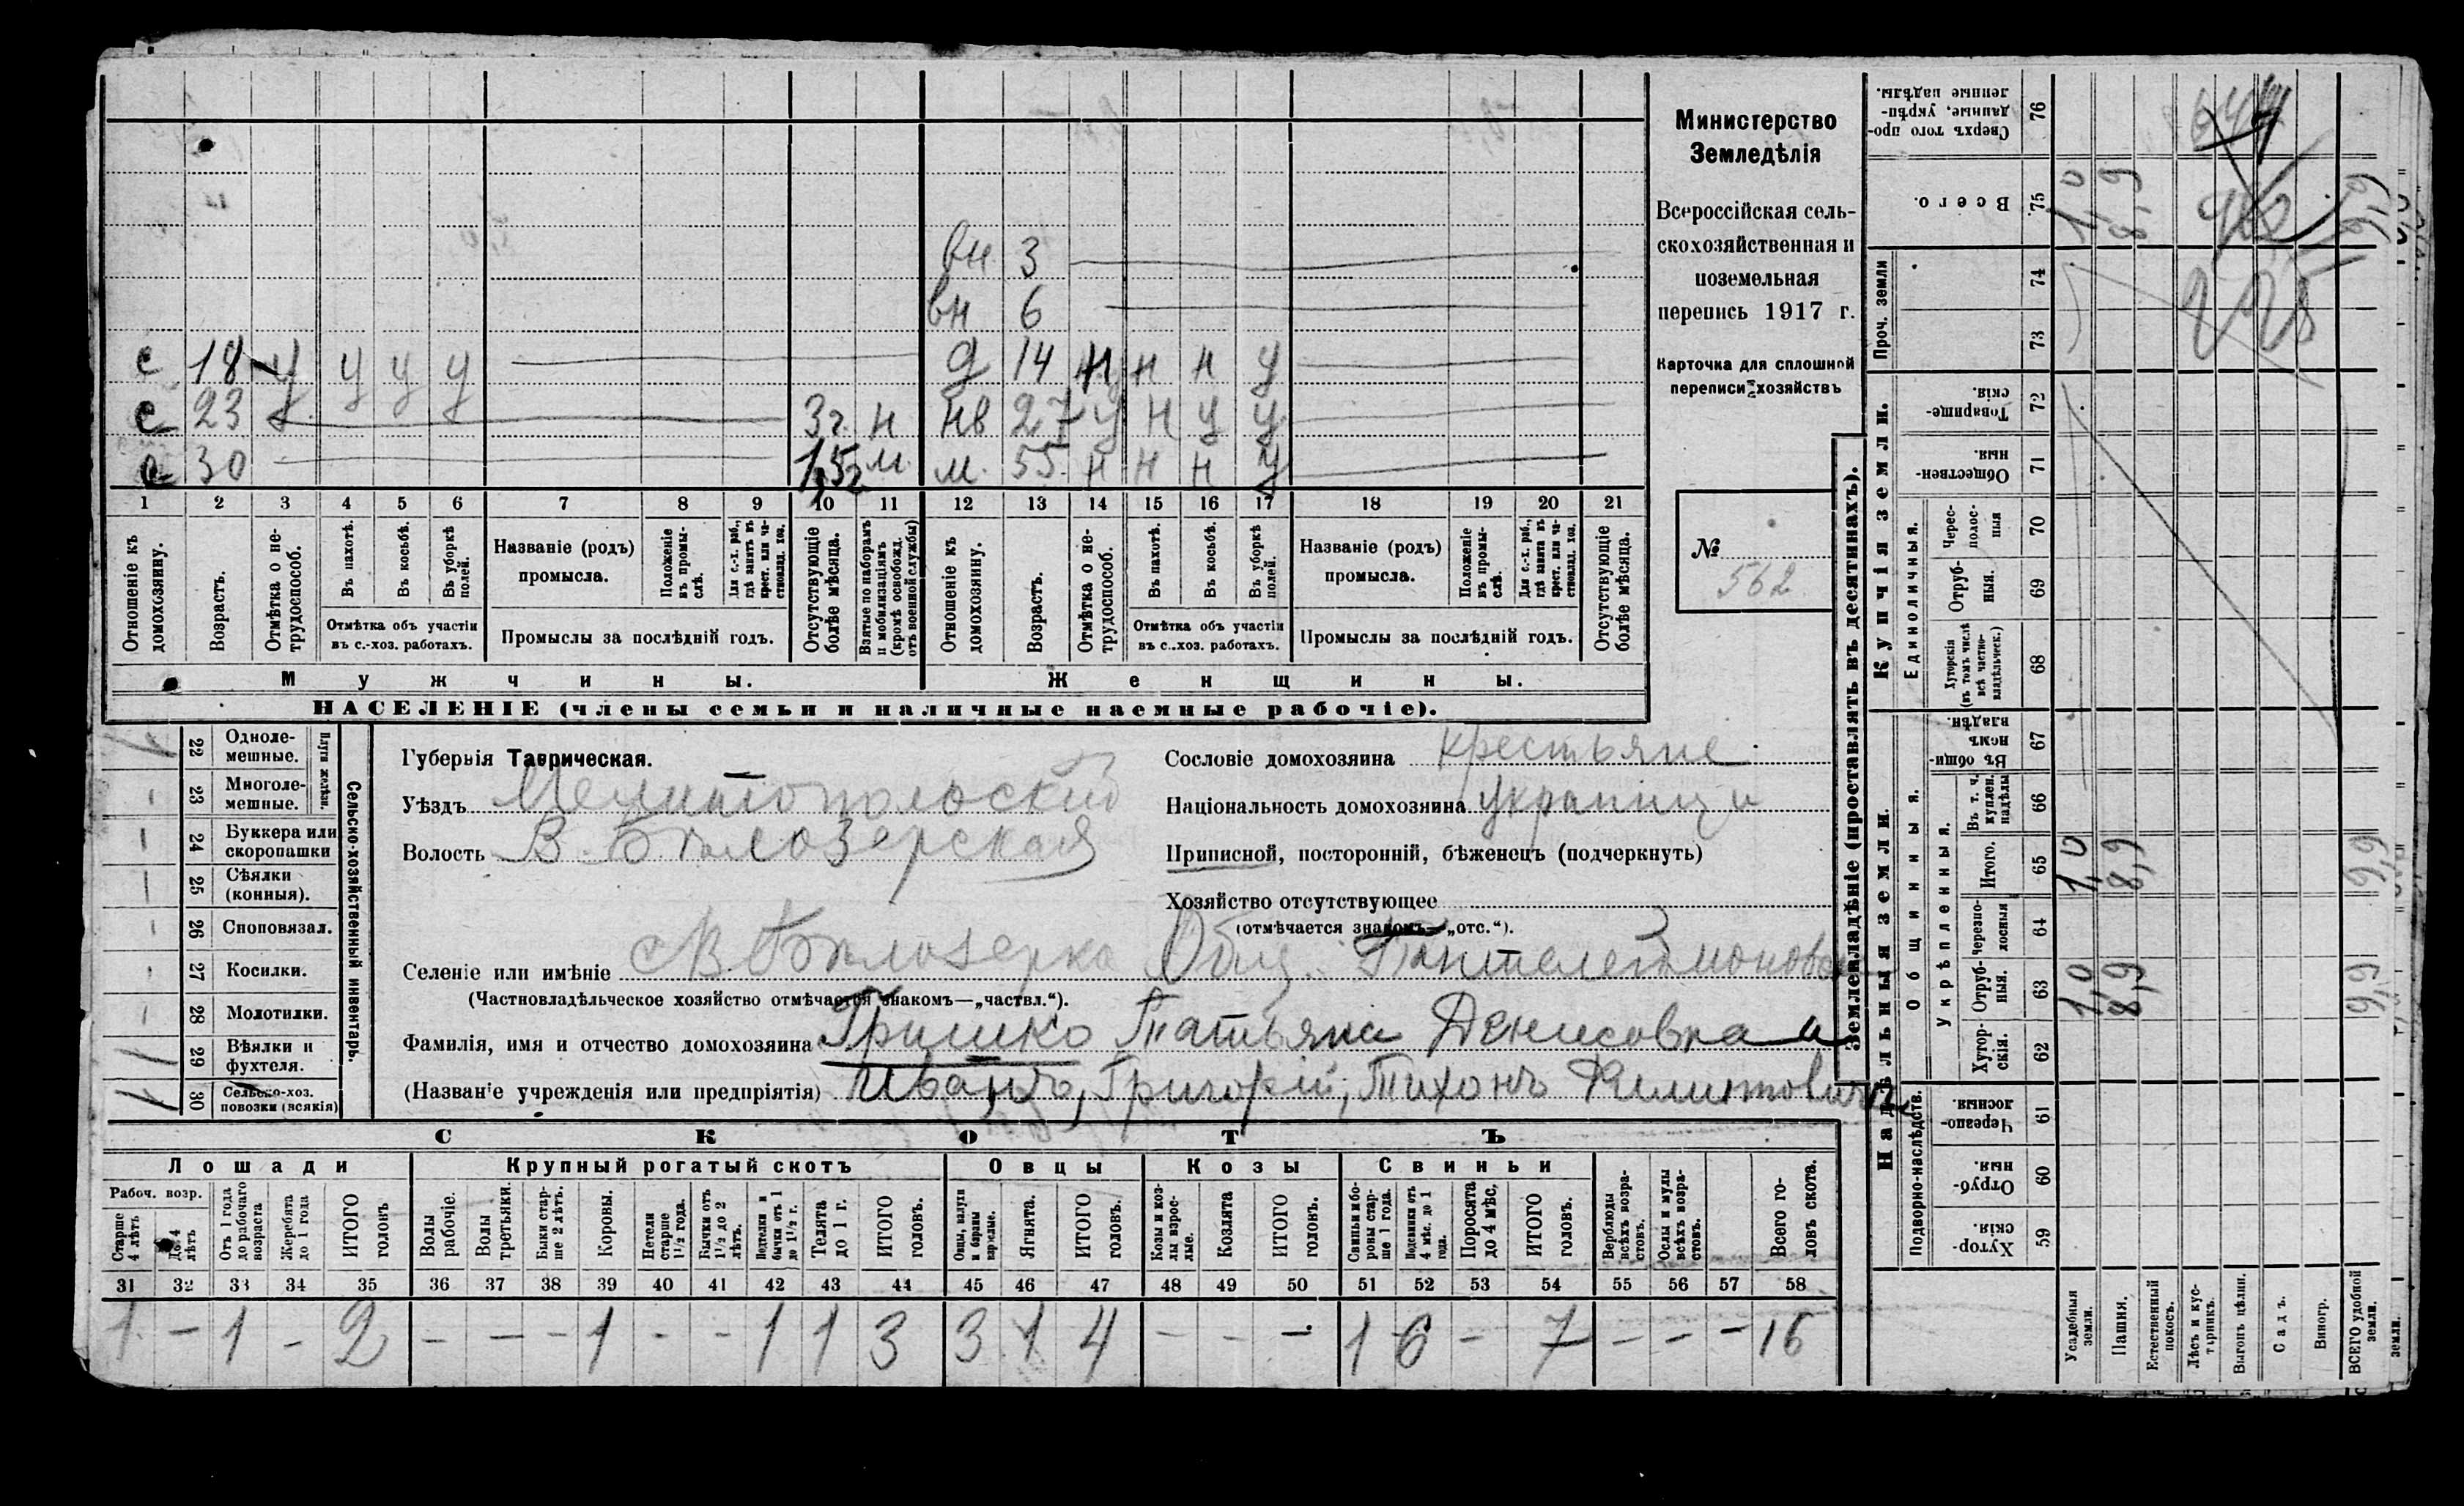 вн 3
вн 6
с 18 у у у у д 14 н н н у
с 23 3 г. н нв 27 у н у у
30 1,5 г. м. м. 55 н н н у
1 2 3 4 5 6 7 8 9 10 11 12 13 14 15 16 17 18 19 20 21
Отношеніе къ домохозяину.
Возрастъ.
Отмѣтка о нетрудоспособ.
Въ пахотѣ.
Въ косьбѣ.
Въ уборкѣ полей.
Отмѣтка объ участіи въ с.-хоз. работахъ.
Названіе (родъ) промысла.
Положеніе въ промыслѣ.
Для с.-х. раб., гдѣ занятъ въ крест. или частновлад. хоз.
Промыслы за послѣдній годъ.
Отсутствующіе болѣе мѣсяца.
Взятые по наборамъ и мобилизаціямъ (кромѣ освобожд. отъ военной службы)
Отношеніе къ домохозяину.
Возрастъ.
Отмѣтка о нетрудоспособ.
Въ пахотѣ.
Въ косьбѣ.
Въ уборкѣ полей.
Отмѣтка объ участіи въ с.-хоз. работахъ.
Названіе (родъ) промысла.
Положеніе въ промыслѣ.
Для с.-х. раб., гдѣ занята въ крест. или частновлад. хоз.
Промыслы за послѣдній годъ.
Отсутствующіе болѣе мѣсяца.
Мужчины. Женщины.
НАСЕЛЕНІЕ (члены семьи и наличные наемные рабочіе).
Министерство
Земледѣлія
Всероссійская сель-
скохозяйственная и
поземельная
перепись 1917 г.
Карточка для сплошной
переписи хозяйствъ
№
562
22 Одноле-мешные.
23 Многоле-мешные.
Плуги желѣзн.
24 Буккера или скоропашки
25 Сѣялки (конныя).
26 Сноповязал.
27 Косилки.
28 Молотилки.
29 Вѣялки и фухтеля.
30 Сельско-хоз. повозки (всякія)
Сельско-хозяйственный инвентарь.
Губернія Таврическая.
Уѣздъ Мелитопольскій
Волость В. Бѣлозерская
Сословіе домохозяина крестьяне
Національность домохозяина украинци
Приписной, посторонній, бѣженецъ (подчеркнуть)
Хозяйство отсутствующее
(отмѣчается знакомъ—„отс.“).
Селеніе или имѣніе с В. Бѣлозерка Общ.
(Частновладѣльческое хозяйство отмѣчается знакомъ—„частвл.“).
Фамилія, имя и отчество домохозяина Гришко Татьяна Денисовна и
(Названіе учрежденія или предпріятія) Иванъ, Григорій, Тихонъ Филиповичи
СКОТЪ
Лошади Крупный рогатый скотъ Овцы Козы Свиньи
Рабоч. возр.
Старше 4 лѣтъ
До 4 лѣтъ
Отъ 1 года до рабочаго возраста
Жеребята до 1 года
ИТОГО головъ
Волы рабочіе.
Волы третьяки.
Быки старше 2 лѣтъ.
Коровы.
Нетели старше 1½ года.
Бычки отъ 1½ до 2 лѣтъ.
Подтелки и бычки отъ 1 до 1½ г.
Телята до 1 г.
ИТОГО головъ.
Овцы, валухи и бараны взрослые.
Ягнята.
ИТОГО головъ.
Козы и козлы взрослые.
Козлята
ИТОГО головъ.
Свиньи и боровы старше 1 года.
Подсвинки отъ 4 мѣс. до 1 года.
Поросята до 4 мѣс.
ИТОГО головъ.
Верблюды всѣхъ возрастовъ.
Ослы и мулы всѣхъ возрастовъ.
Всего головъ скота.
31 32 33 34 35 36 37 38 39 40 41 42 43 44 45 46 47 48 49 50 51 52 53 54 55 56 57 58
1 - 1 - 2 - - - 1 - - 1 1 3 3 1 4 - - - 1 6 - 7 - - - 16
Землевладѣніе (проставлять въ десятинахъ).
Надѣльныя земли.
Купчія земли.
Проч. земли
Сверхъ того проданные, укрѣпленные надѣлы. 76
Всего. 75
74
73
Товарищескія. 72
Общественныя. 71
Единоличныя.
Чересполосныя 70
Отрубныя. 69
Хуторскія (въ томъ числѣ всѣ частновладѣльческ.) 68
Въ общинномъ владѣн. 67
Общинныя.
Укрѣпленныя.
Въ т. ч. куплен. надѣлы 66
Итого. 65
Черезполосныя 64
Отрубныя. 63
Хуторскія. 62
Подворно-наслѣдств.
Черезполосныя. 61
Отрубныя. 60
Хуторскія. 59
Усадебныя земли. 1,0 1,0 1,0
Пашня. 8,9 8,9 8,9
Естественный покосъ.
Лѣсъ и кустарникъ.
Выгонъ цѣлин.
Садъ.
Виногр.
ВСЕГО удобной земли. 9,9 9,9 9,9
земли.